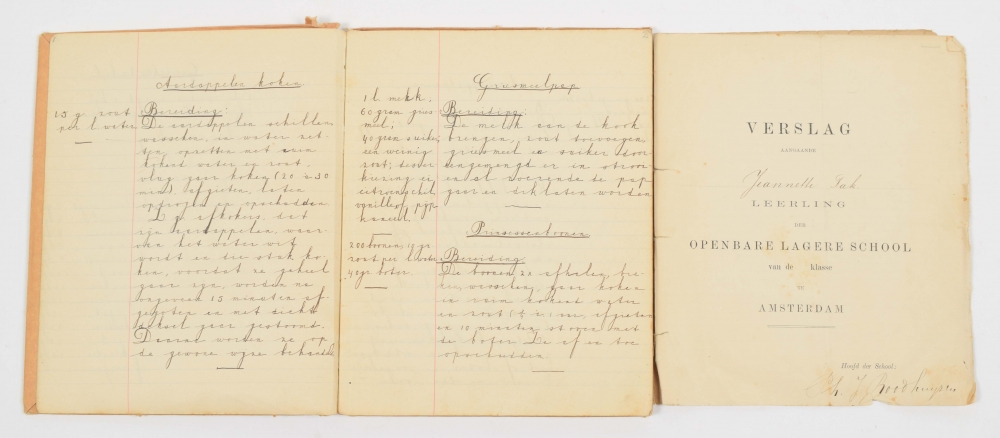 Aardappelen koken
15 g zout
per l water
Bereiding:
De aardappelen schillen
wasschen, in water zet-
ten, opzetten met even
kokend water en zout,
vlug gaar koken (20 à 30
min.) afgieten, laten
opdrogen en opschudden.
De afkokers, dat
zijn aardappelen, waar
van het water wit
wordt en die stuk ko-
ken, voordat ze geheel
gaar zijn, worden na
ongeveer 15 minuten af-
gegoten en met dicht
deksel gaar gestoomd.
Daarna worden ze op
de gewone wijze behandeld
Griesmeelpap
1 l melk.
60 gram gries
meel,
40 gram suiker
een weinig
zout, desver
kiezing ei
citroenschil
vanille, pijp
kaneel.
Bereiding:
De melk aan de kook
brengen, zout toevoegen
griesmeel en suiker door
eengemengd er in strooi-
en al roerende de pap
gaar en dik laten worden
Prinsessenboonen
200 boonen, 10 gr
zout per l water
40 gr boter.
Bereiding
De boonen afhalen, bre-
ken, wasschen, gaar koken
in ruim kokend water
en zout uur, afgieten
en 10 minuten stoven met
de boter. Ze af en toe
opschudden
VERSLAG
AANGAANDE
Jeannette Sak
LEERLING
DER
OPENBARE LAGERE SCHOOL
van de klasse
TE
AMSTERDAM
Hoofd der School: